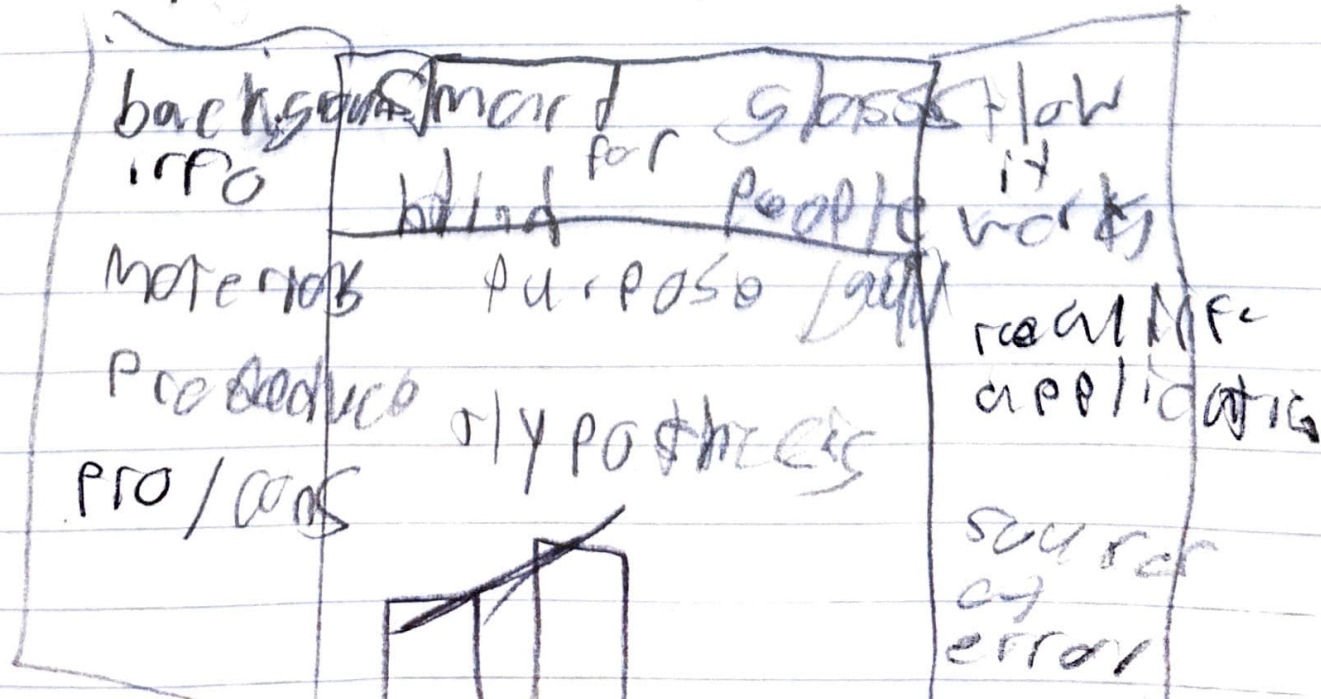 background
info
Materials
Procedure
pro/cons
Smart glasses
for
blind people
Purpose
Hypothesis
How
it
works
real life
application
source
of
error